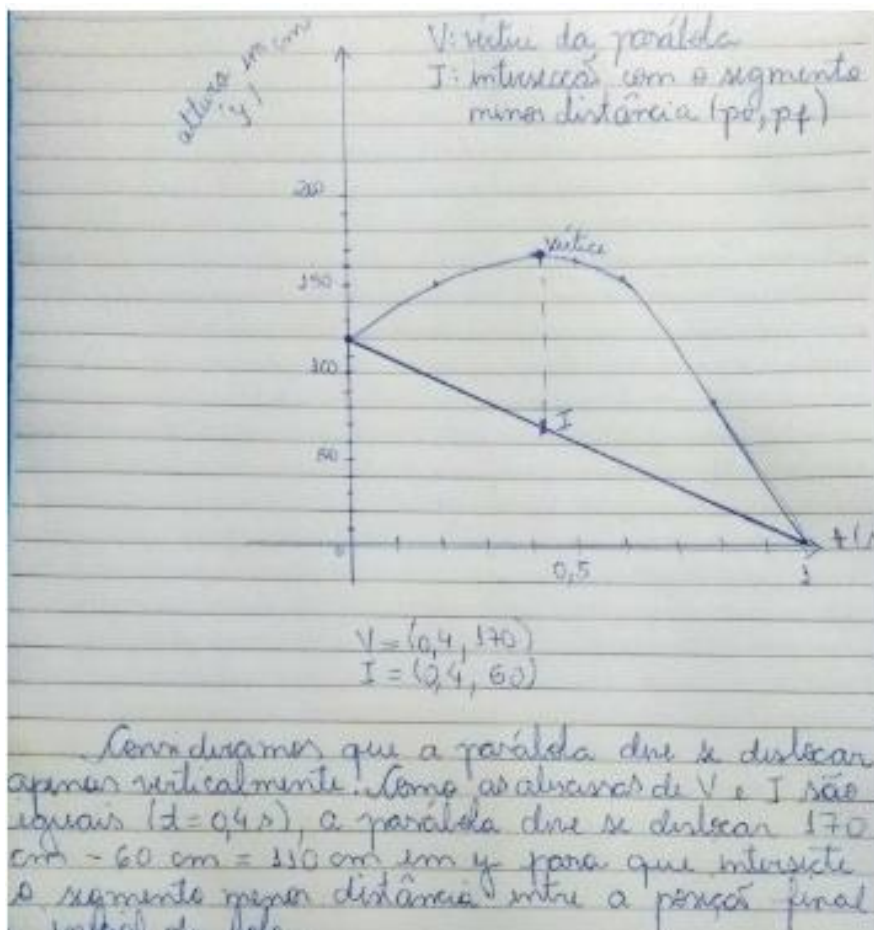 V: vértice da parábola
I: intersecção com o segmento
menor distância (po, pf)
altura em cm
(y)
200
Vértice
150
100
I
50
0
0,5
1
t(s
V = (0,4, 170)
I = (0,4, 60)
Consideramos que a parábola deve se deslocar
apenas verticalmente. Como as abscissas de V e I são
iguais (t=0,4s), a parábola deve se deslocar 170
cm - 60 cm = 110 cm em y para que intersecte
o segmento menor distância entre a posição final